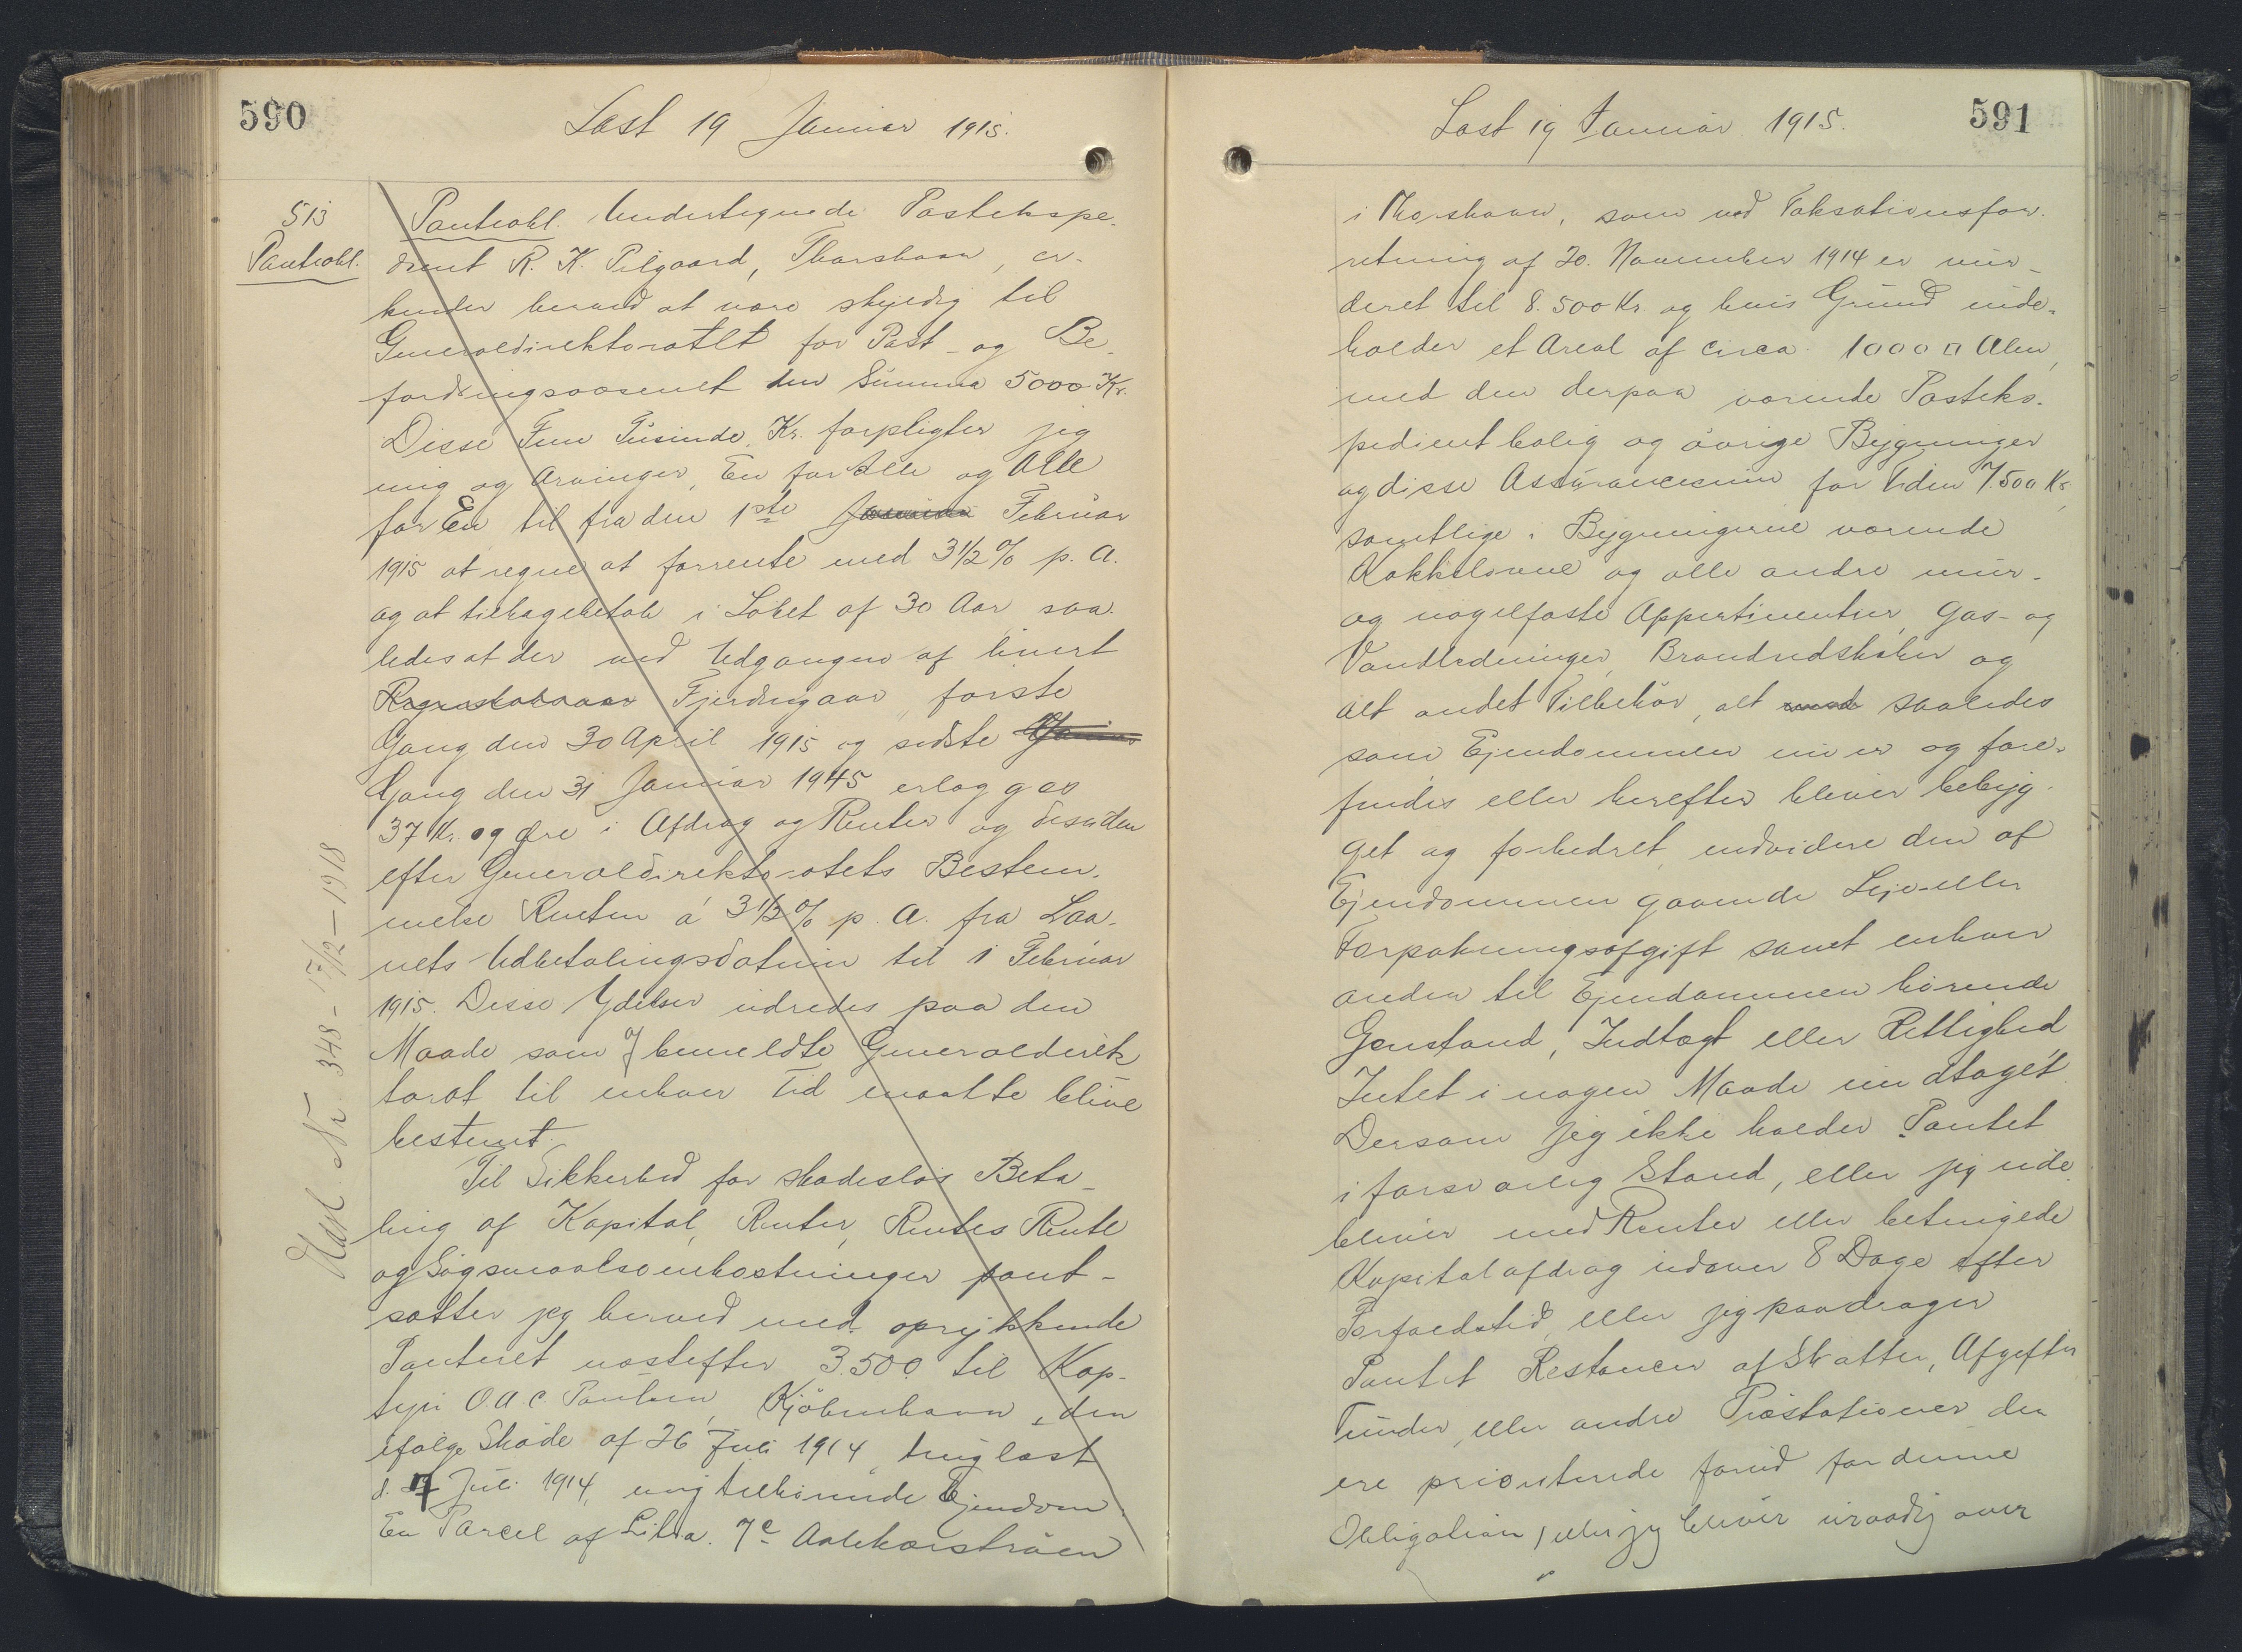 590
Læst 19 Januar 1915.
513
Panteobl.
Panteobl. Undertegnede Postekspe-
dient R. K. Pilgaard, Thorshavn, er-
kender herved at være skyldig til
Generaldirektoratet for Post- og Be-
fordringsvæsenet den Summa 5000 Kr.
Disse Fem Tusinde Kr. forpligter jeg
mig og Arvinger, En for Alle og Alle
for En til fra den 1ste Januar Februar
1915 at regne at forrente med 3½% p. a.
og at tilbagebetale i Løbet af 30 Aar saa-
ledes at der ved Udgangen af hvert
Regnskabsaar Fjerdingaar, første
Gang den 30 April 1915 og sidste Gang
Gang den 31 Januar 1945 erlægges
37 Kr. og Øre i Afdrag og Renter og desuden
efter Generaldirektoratets Bestem-
melse Renten á 3½% p. a. fra Laa-
nets Udbetalingsdatum til 1 Februar
1915. Disse Ydelser udredes paa den
Maade som af bemeldte Generaldirek
torat til enhver Tid maatte blive
bestemt.
Til Sikkerhed for skadesløs Beta-
ling af Kapital, Renter, Rentes Rente
og Søgsmaalsomkostninger pant-
sætter jeg herved med oprykkende
Panteret næstefter 3.500 til Kap-
tejn O. A. C. Paulsen, Kjøbenhavn, den
ifølge Skøde af 26 Juli 1914, tinglæst
d. 7 Juli 1914, mig tilhørende Ejendom
En Parcel af Litra. 7c Aalekærstrøen
Udsl. Nr. 348 - 17/12 - 1918
591
Læst 19 Januar 1915.
i Thorshavn, som ved Taksationsfor-
retning af 20. November 1914 er vur-
deret til 8.500 Kr og hvis Grund inde-
holder et Areal af circa 1000 □ Alen,
med den derpaa værende Posteks-
pedientbolig og øvrige Bygninger
og disse Assurancesum for Tiden 7.500 Kr,
samtlige i Bygningerne værende
Kakkelovne og alle andre mur-
og nagelfaste Appertinentier, Gas- og
Vandledninger, Brandredskaber og
alt andet Tilbehør, alt saaledes
som Ejendommen nu er og fore-
findes eller herefter bliver bebyg-
get og forbedret, endvidere den af
Ejendommen gaaende Leje- eller
Forpakningsafgift samt enhver
anden til Ejendommen hørende
Genstand, Indtægt eller Rettighed
Intet i nogen Maade undtaget.
Dersom jeg ikke holder Pantet
i forsvarlig Stand, eller jeg ude
bliver med Renter eller betingede
Kapitalafdrag udover 8 Dage efter
Forfaldstid, eller jeg paadrager
Pantet Restancer af Skatter, Afgifter
Tiender, eller andre Præstationer der
ere prioriterede forud for denne
Obligation, eller jeg bliver uraadig over